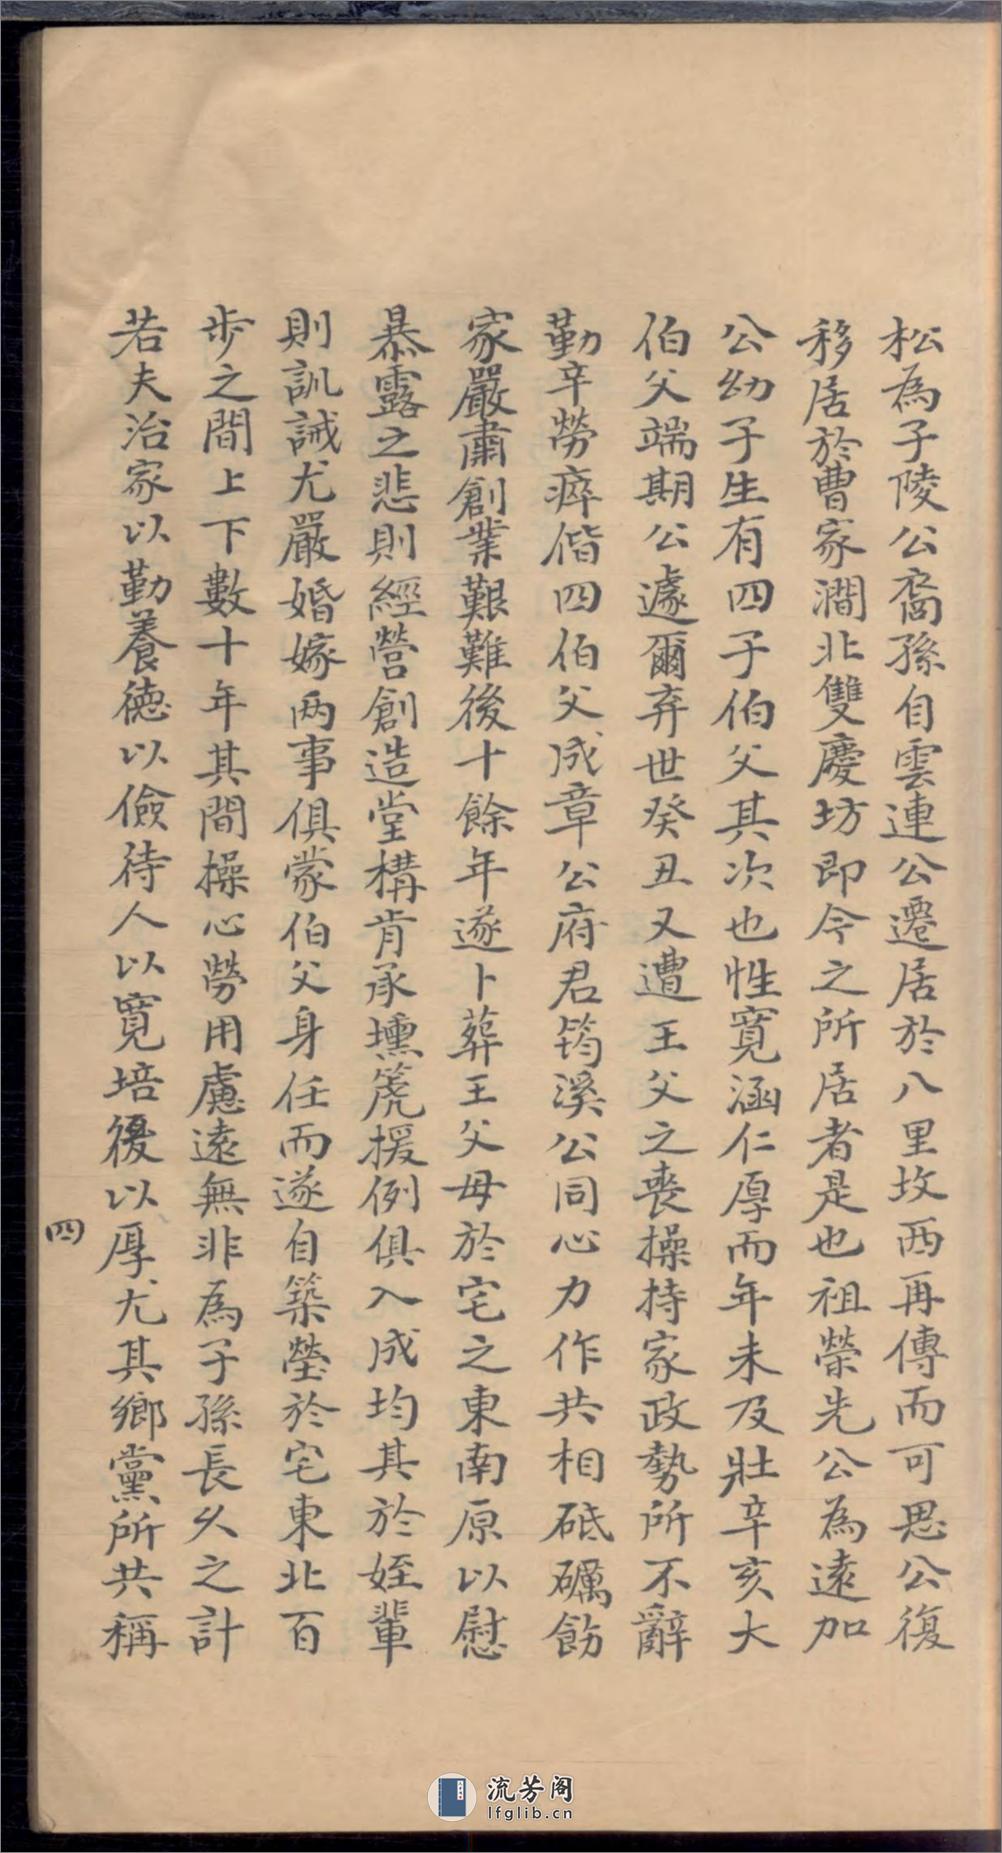 松為子陵公裔孫自雲連公遷居於八里坟西再傳而可思公復
移居於曹家澗北雙慶坊即今之所居者是也祖榮先公為遠加
公幼子生有四子伯父其次也性寬涵仁厚而年未及壯辛亥大
伯父端期公遽爾弃世癸丑又遭王父之喪操持家政勢所不辭
勤辛勞瘁偕四伯父成章公府君筠溪公同心力作共相砥礪飭
家嚴肅創業艱難後十餘年遂卜葬王父母於宅之東南原以慰
暴露之悲則經營創造堂構肯承壎箎援例俱入成均其於姪輩
則訓誡尤嚴婚嫁两事俱蒙伯父身任而遂自築塋於宅東北百
步之間上下數十年其間操心勞用慮遠無非為子孫長久之計
若夫治家以勤養德以儉待人以寬培後以厚尤其鄉黨所共稱
四
流芳阁
lfglib.cn